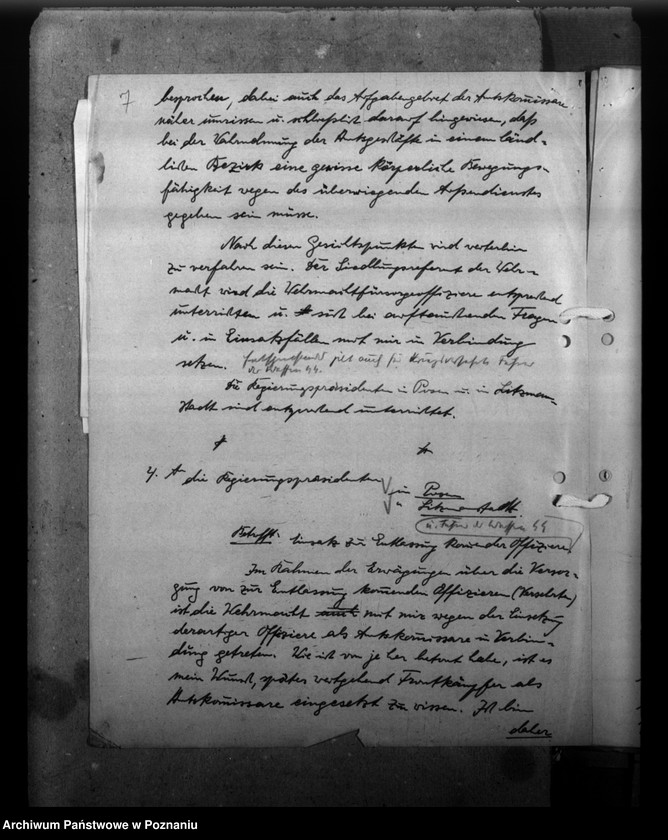 7
besprochen, dabei auch das Aufgabengebiet der Amtskom̄issare
näher umrissen u. schliesslich darauf hingewiesen, daß
bei der Wahrnehmung der Amtsgeschäfte in einem länd-
lichen Bezirk eine gewisse körperliche Bewegungs-
fähigkeit wegen des überwiegenden Aussendienstes
gegeben sein müsse.
Nach diesen Gesichtspunkten wird weiterhin
zu verfahren sein. Der Siedlungsreferent der Wehr-
macht wird die Wehrmachtfürsorgeoffiziere entsprechend
unterrichten u. sich bei auftauchenden Fragen
u. in Einsatzfällen mit mir in Verbindung
setzen. Entsprechendes gilt auch für kriegsversehrte Führer
der Waffen SS.
Die Regierungspräsidenten in Posen u. in Litzmann-
stadt sind entsprechend unterrichtet.
4. A die Regierungspräsidenten in Posen
" Litzmannstadt
u. Führer der Waffen SS
Betrifft: Einsatz zur Entlassung kom̄ender Offiziere
Im Rahmen der Erwägungen über die Versor-
gung von zur Entlassung kom̄enden Offizieren (Versehrten)
ist die Wehrmacht auch mit mir wegen der Einsetzung
derartiger Offiziere als Amtskom̄issare in Verbin-
dung getreten. Wie ich von je her betont habe, ist es
mein Wunsch, später weitgehend Frontkämpfer als
Amtskom̄issare eingesetzt zu wissen. Ich bin
daher
Archiwum Państwowe w Poznaniu